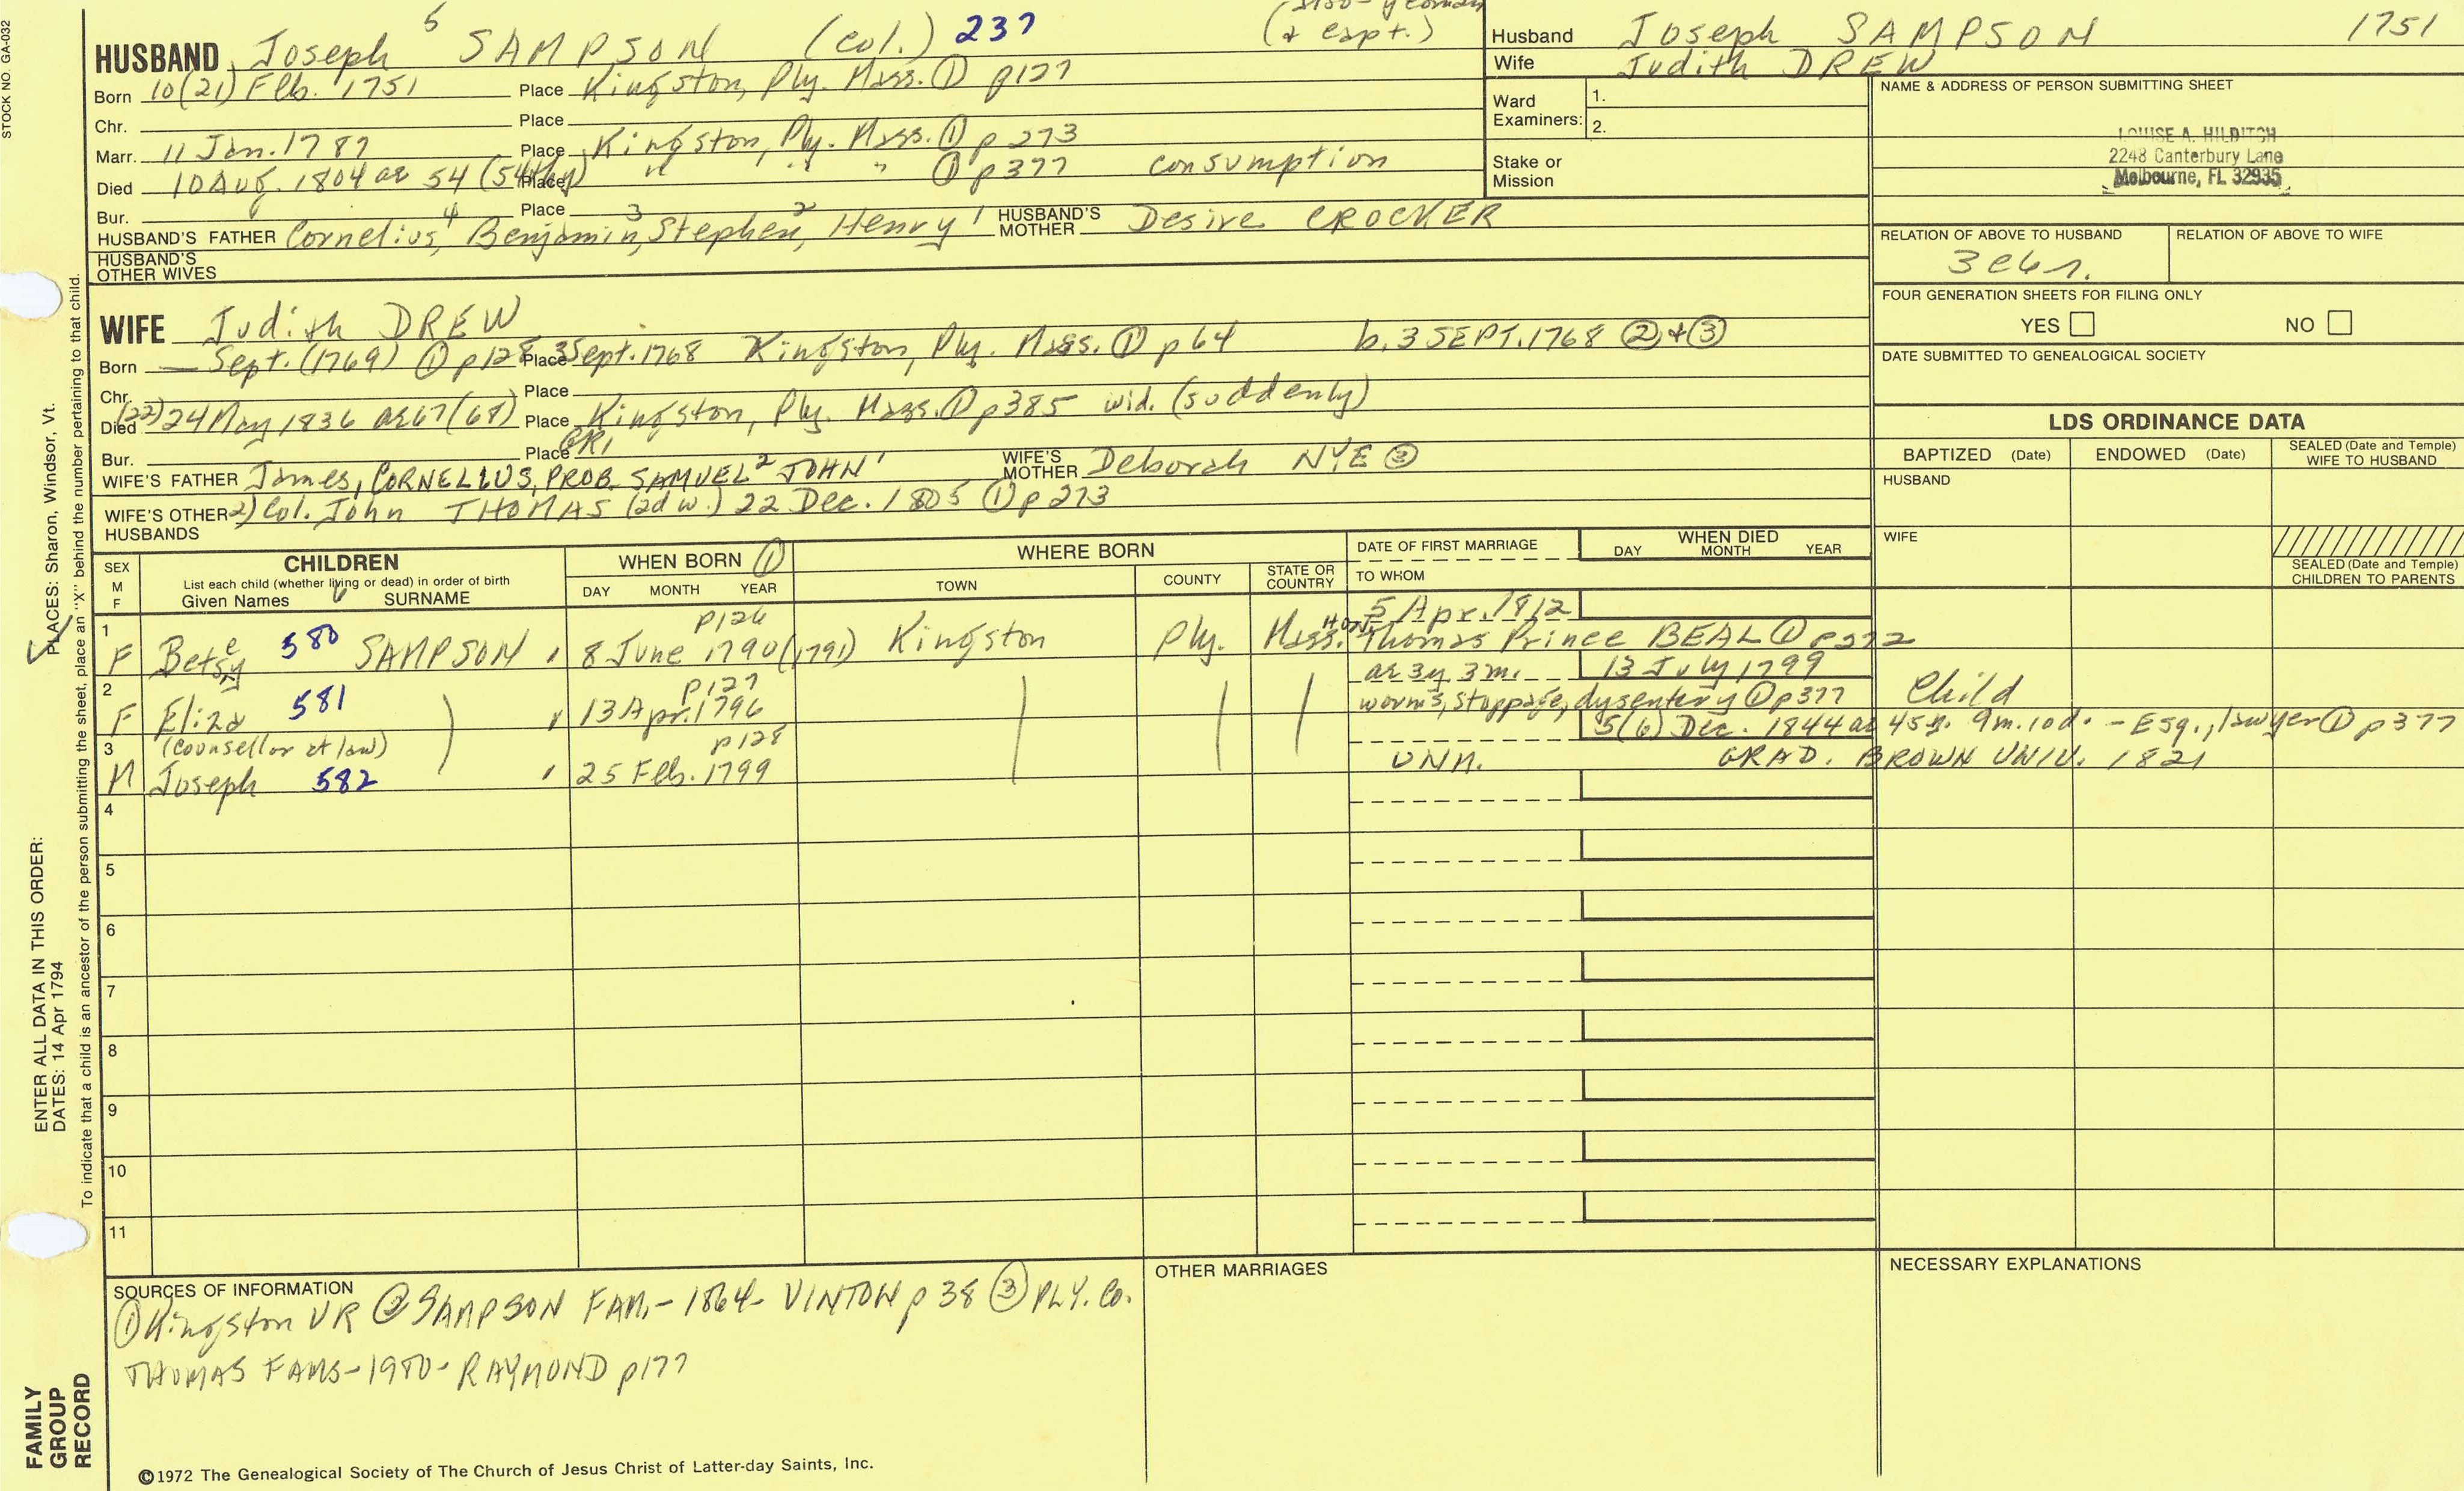 STOCK NO. GA-032
HUSBAND Joseph 5 SAMPSON (Col.) 237 (& capt.)
Born 10(21) Feb. 1751 Place Kingston, Ply. Mass. ① p127
Chr. Place
Marr. 11 Jan. 1789 Place Kingston, Ply. Mass. ① p 273
Died 10 Aug. 1804 ae 54 Place " " " ① p377 consumption
Bur. Place
HUSBAND'S FATHER Cornelius 4, Benjamin 3, Stephen 2, Henry 1 HUSBAND'S MOTHER Desire CROCKER
HUSBAND'S OTHER WIVES
Husband Joseph SAMPSON 1751
Wife Judith DREW
Ward Examiners: 1.
2.
Stake or Mission
NAME & ADDRESS OF PERSON SUBMITTING SHEET
LOUISE A. HILDITCH
2248 Canterbury Lane
Melbourne, FL 32935
RELATION OF ABOVE TO HUSBAND RELATION OF ABOVE TO WIFE
FOUR GENERATION SHEETS FOR FILING ONLY
YES NO
DATE SUBMITTED TO GENEALOGICAL SOCIETY
WIFE Judith DREW
Born — Sept. (1769) ① p128 Place 3 Sept. 1768 Kingston, Ply. Mass. ① p 64 b. 3 SEPT. 1768 ② + ③
Chr. Place
Died (22) 24 May 1836 ae 67 (68) Place Kingston, Ply. Mass. ① p385 wid. (suddenly)
Bur. Place GR1
WIFE'S FATHER James, CORNELIUS, PROB. SAMUEL 2 JOHN 1 WIFE'S MOTHER Deborah NYE ③
WIFE'S OTHER HUSBANDS 2) Col. John THOMAS (2d w.) 22 Dec. 1805 ① p 273
LDS ORDINANCE DATA
BAPTIZED (Date) ENDOWED (Date) SEALED (Date and Temple) WIFE TO HUSBAND
HUSBAND
WIFE
SEALED (Date and Temple) CHILDREN TO PARENTS
SEX M F
CHILDREN
List each child (whether living or dead) in order of birth
Given Names 6 SURNAME
WHEN BORN ①
DAY MONTH YEAR
WHERE BORN
TOWN COUNTY STATE OR COUNTRY
DATE OF FIRST MARRIAGE
TO WHOM
WHEN DIED
DAY MONTH YEAR
p126 5 Apr. 1812
1 F Betsy e 580 SAMPSON 8 June 1790 (1791) Kingston Ply. Mass. Hon. Thomas Prince BEAL ① p272
p127 ae 3y 3m. 13 July 1799
2 F Eliza 581 13 Apr. 1796 worms, stoppage, dysentery ① p377 Child
3 (counsellor at law) p128 5(6) Dec. 1844 ae 45y. 9m. 10d. - Esq., lawyer ① p377
M Joseph 582 25 Feb. 1799 UNM. GRAD. BROWN UNIV. 1821
4
5
6
7
8
9
10
11
SOURCES OF INFORMATION
① Kingston VR ② SAMPSON FAM. - 1864 - VINTON p 38 ③ PLY. Co.
THOMAS FAMS - 1980 - RAYMOND p177
OTHER MARRIAGES
NECESSARY EXPLANATIONS
©1972 The Genealogical Society of The Church of Jesus Christ of Latter-day Saints, Inc.
FAMILY GROUP RECORD
ENTER ALL DATA IN THIS ORDER:
DATES: 14 Apr 1794
PLACES: Sharon, Windsor, Vt.
To indicate that a child is an ancestor of the person submitting the sheet, place an "X" behind the number pertaining to that child.